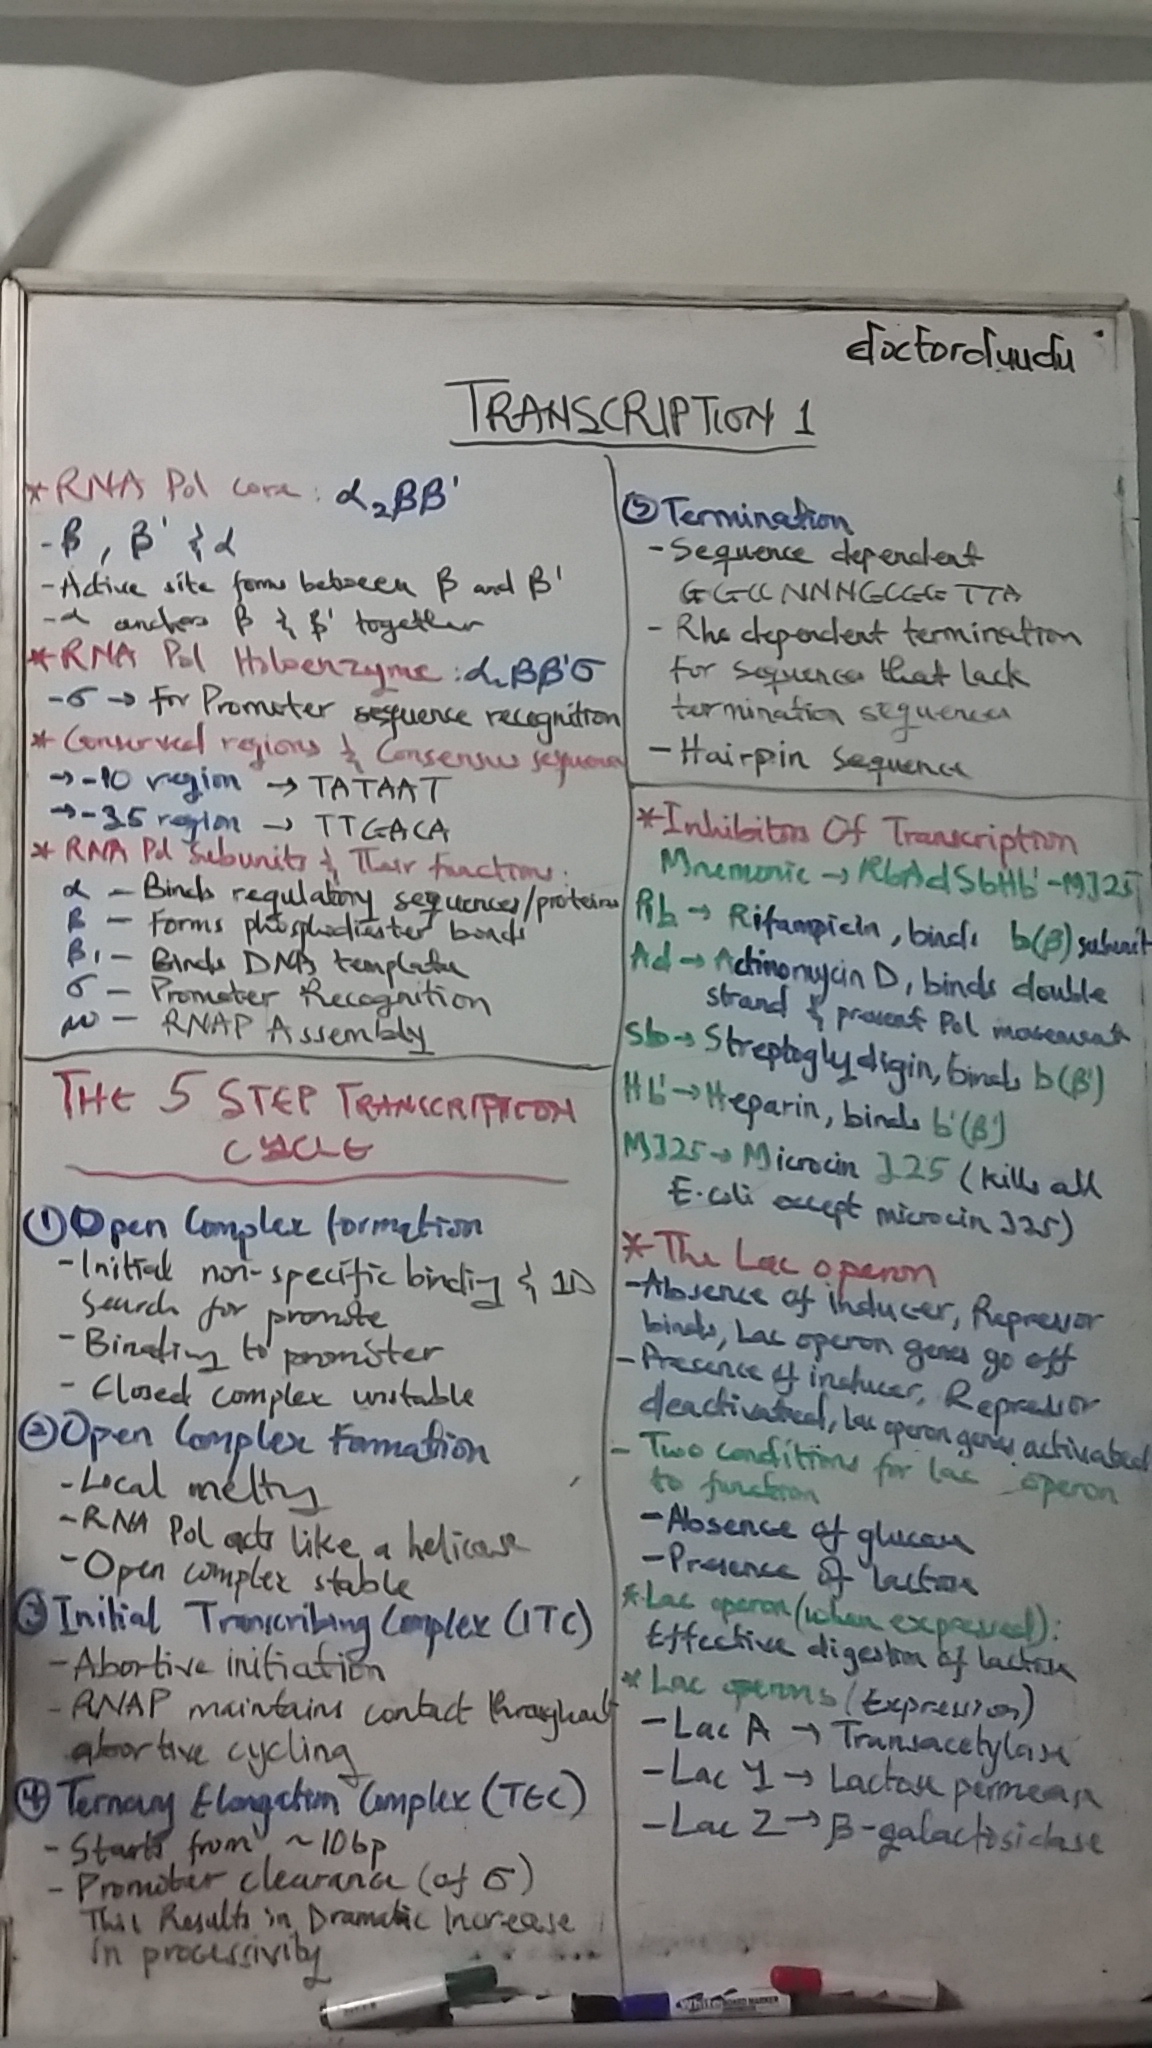 doctorofundi.
TRANSCRIPTION 1
* RNA Pol core : α₂BB'
- β, β' & α
- Active site form between β and β'
- α anchors β & β' together
* RNA Pol Holoenzyme : α₂BB'σ
- σ → For Promoter sequence recognition
* Conserved regions & Consensus sequence
→ -10 region → TATAAT
→ -35 region → TTGACA
* RNA Pol subunits & Their functions :
α - Binds regulatory sequences/proteins
β - forms phosphodiester bonds
β' - Binds DNA template
σ - Promoter Recognition
ω - RNAP Assembly
THE 5 STEP TRANSCRIPTION
CYCLE
① Open Complex formation
- Initial non-specific binding & 1D
Search for promote
- Binding to promoter
- Closed complex unstable
② Open Complex Formation
- Local melting
- RNA Pol acts like a helicase
- Open complex stable
③ Initial Transcribing Complex (ITC)
- Abortive initiation
- RNAP maintains contact throughout
abortive cycling
④ Ternary Elongation Complex (TEC)
- Starts from ~10bp
- Promoter clearance (of σ)
This Results in Dramatic Increase
in processivity
⑤ Termination
- Sequence dependent
GGCCNNNGCCGTTA
- Rho dependent termination
for sequences that lack
termination sequences
- Hairpin sequence
* Inhibitors Of Transcription
Mnemonic → RbAdSbHb'-MJ25
Rb → Rifampicin, binds b(β) subunit
Ad → Actinomycin D, binds double
strand & prevent Pol movement
Sb → Streptoglydigin, binds b(β)
Hb' → Heparin, binds b'(β')
MJ25 → Microcin J25 (kills all
E.coli except microcin J25)
* The Lac operon
- Absence of Inducer, Repressor
binds, Lac operon genes go off
- Presence of inducer, Repressor
deactivated, lac operon genes activated
- Two conditions for lac operon
to function
- Absence of glucose
- Presence of lactose
* Lac operon (when expressed):
Effective digestion of lactose
* Lac operons (Expression)
- Lac A → Transacetylase
- Lac Y → Lactose permease
- Lac Z → β-galactosidase